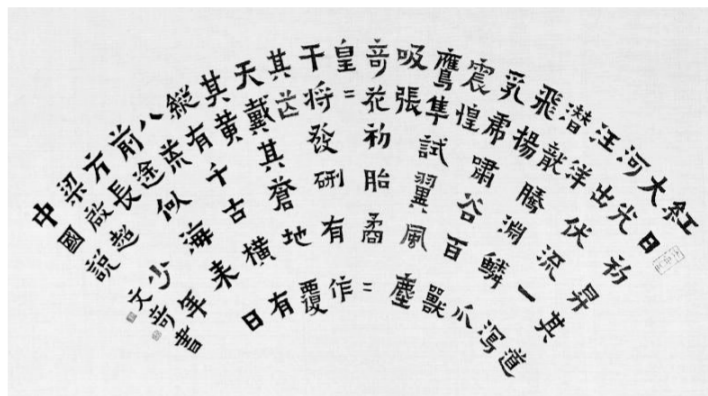 紅日初昇其道
大光
河出伏流一瀉
汪洋
潛龍騰淵鱗爪
飛揚
乳虎嘯谷百獸
震惶
鷹隼試翼風塵
吸張
竒花初胎矞=
皇=
干將發硎有作
其芒
天戴其蒼地覆
其黃
縱有千古橫有
八荒
前途似海來日
方長
梁啟超少年
中國說
文竒書